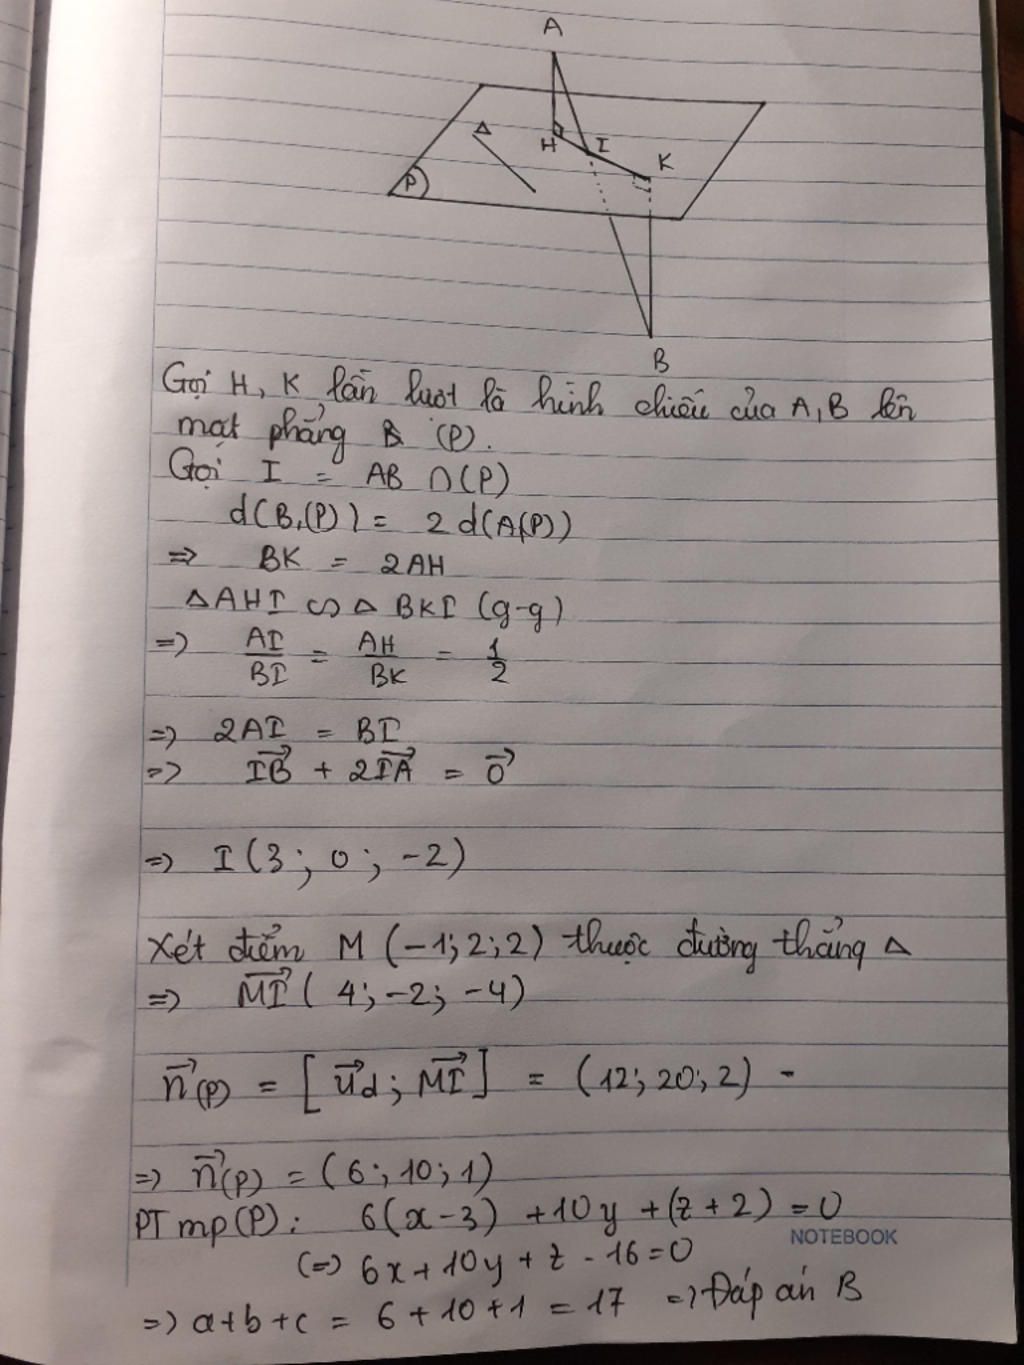 A
Δ
H
I
K
P
B
Gọi H, K lần lượt là hình chiếu của A, B lên
mặt phẳng (P).
Gọi I = AB ∩ (P)
d(B,(P)) = 2 d(A(P))
=> BK = 2AH
ΔAHI ∽ Δ BKI (g-g)
=> AI/BI = AH/BK = 1/2
=> 2AI = BI
=> \vec{IB} + 2\vec{IA} = \vec{0}
=> I (3; 0; -2)
Xét điểm M (-1; 2; 2) thuộc đường thẳng Δ
=> \vec{MI} ( 4; -2; -4)
\vec{n}(P) = [\vec{u}d; \vec{MI}] = (12; 20; 2) -
=> \vec{n}(P) = (6; 10; 1)
PT mp(P): 6(x-3) + 10y + (z+2) = 0
NOTEBOOK
(=) 6x + 10y + z - 16 = 0
=> a+b+c = 6+10+1 = 17 => Đáp án B